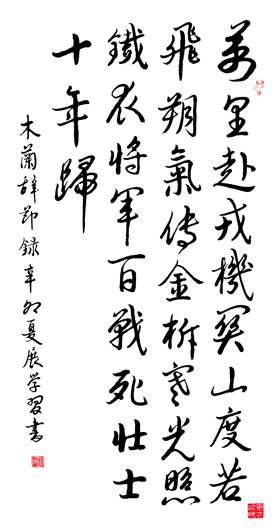 萬里赴戎機關山度若
飛朔氣傳金柝寒光照
鐵衣將軍百戰死壯士
十年歸
木蘭辭節錄辛卯夏展学習書